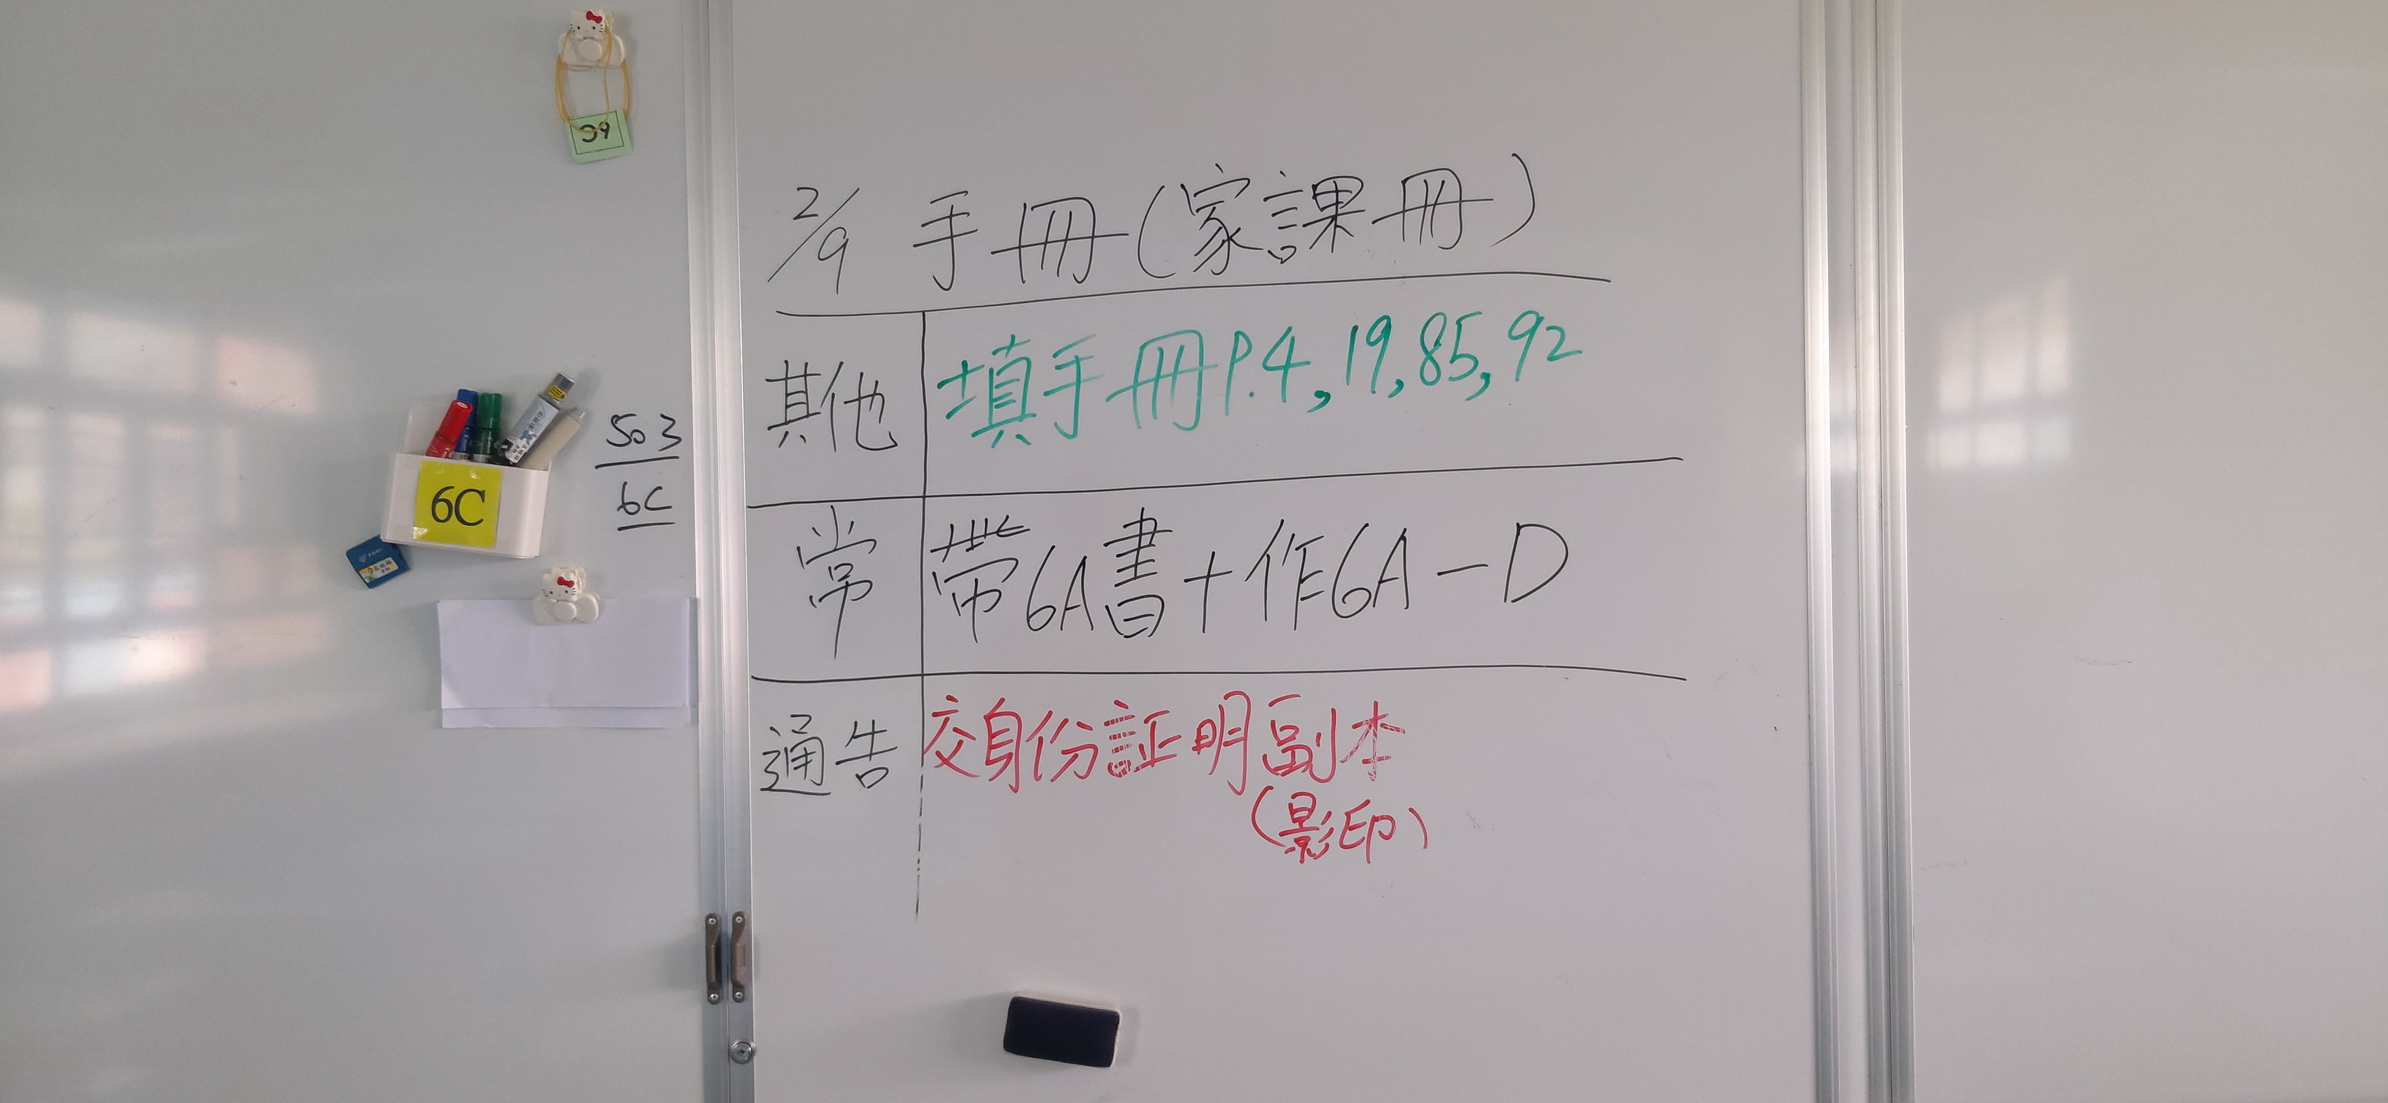 6C
2/9 手冊(家課冊)
其他 填手冊P.4,19,85,92
503
6C
6C
常 帶6A書+作6A-D
通告 交身份証明副本
(影印)